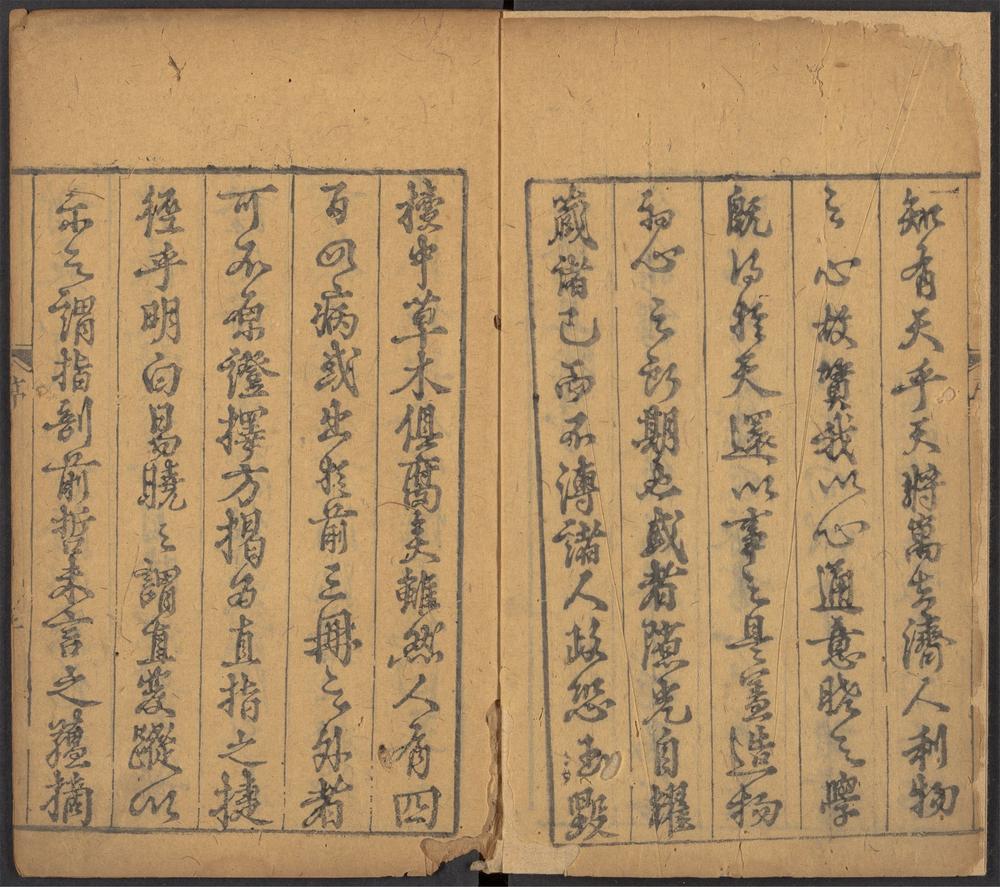 知有天乎天將萬古濟人利物
之心故賚我以心通意曉之學
既得於天還以事之是盖造物
初心之所期也或者隱光自耀
藏諸己而不溥諸人政恐毀
櫝中草木俱腐矣雖然人有四
百四病或出於前三冊之外者
可不原證擇方揭為直指之捷
徑乎明白易曉之謂直發蹤以
示之謂指剖前哲未言之蘊摘
序